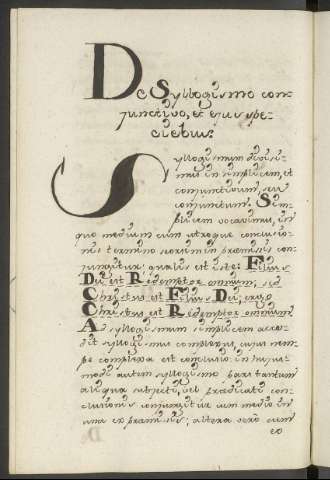 De Syllogismo con-
junctivo, et ejus spe-
ciebus.
Syllogismum divisi-
mus in simplicem, et
conjunctivum, sive
conjunctum. Sim-
plicem vocavimus, in
quo medium cum utroque conclusio-
nis termino seorsim in præmissis con-
jungitur: qualis est iste: Filius
Dei est Redemptor omnium, sed
Christus est Filius Dei, ergo
Christus est Redemptor omnium
A syllogismum simplicem acce-
dit syllogismus complexus, cujus nem-
pe complexa est conclusio: in hujus-
modi autem syllogismo pars tantum
aliqua subjecti, vel prædicati con-
clusionis conjungitur cum medio in
una ex præmissis; altera vero cum
eo